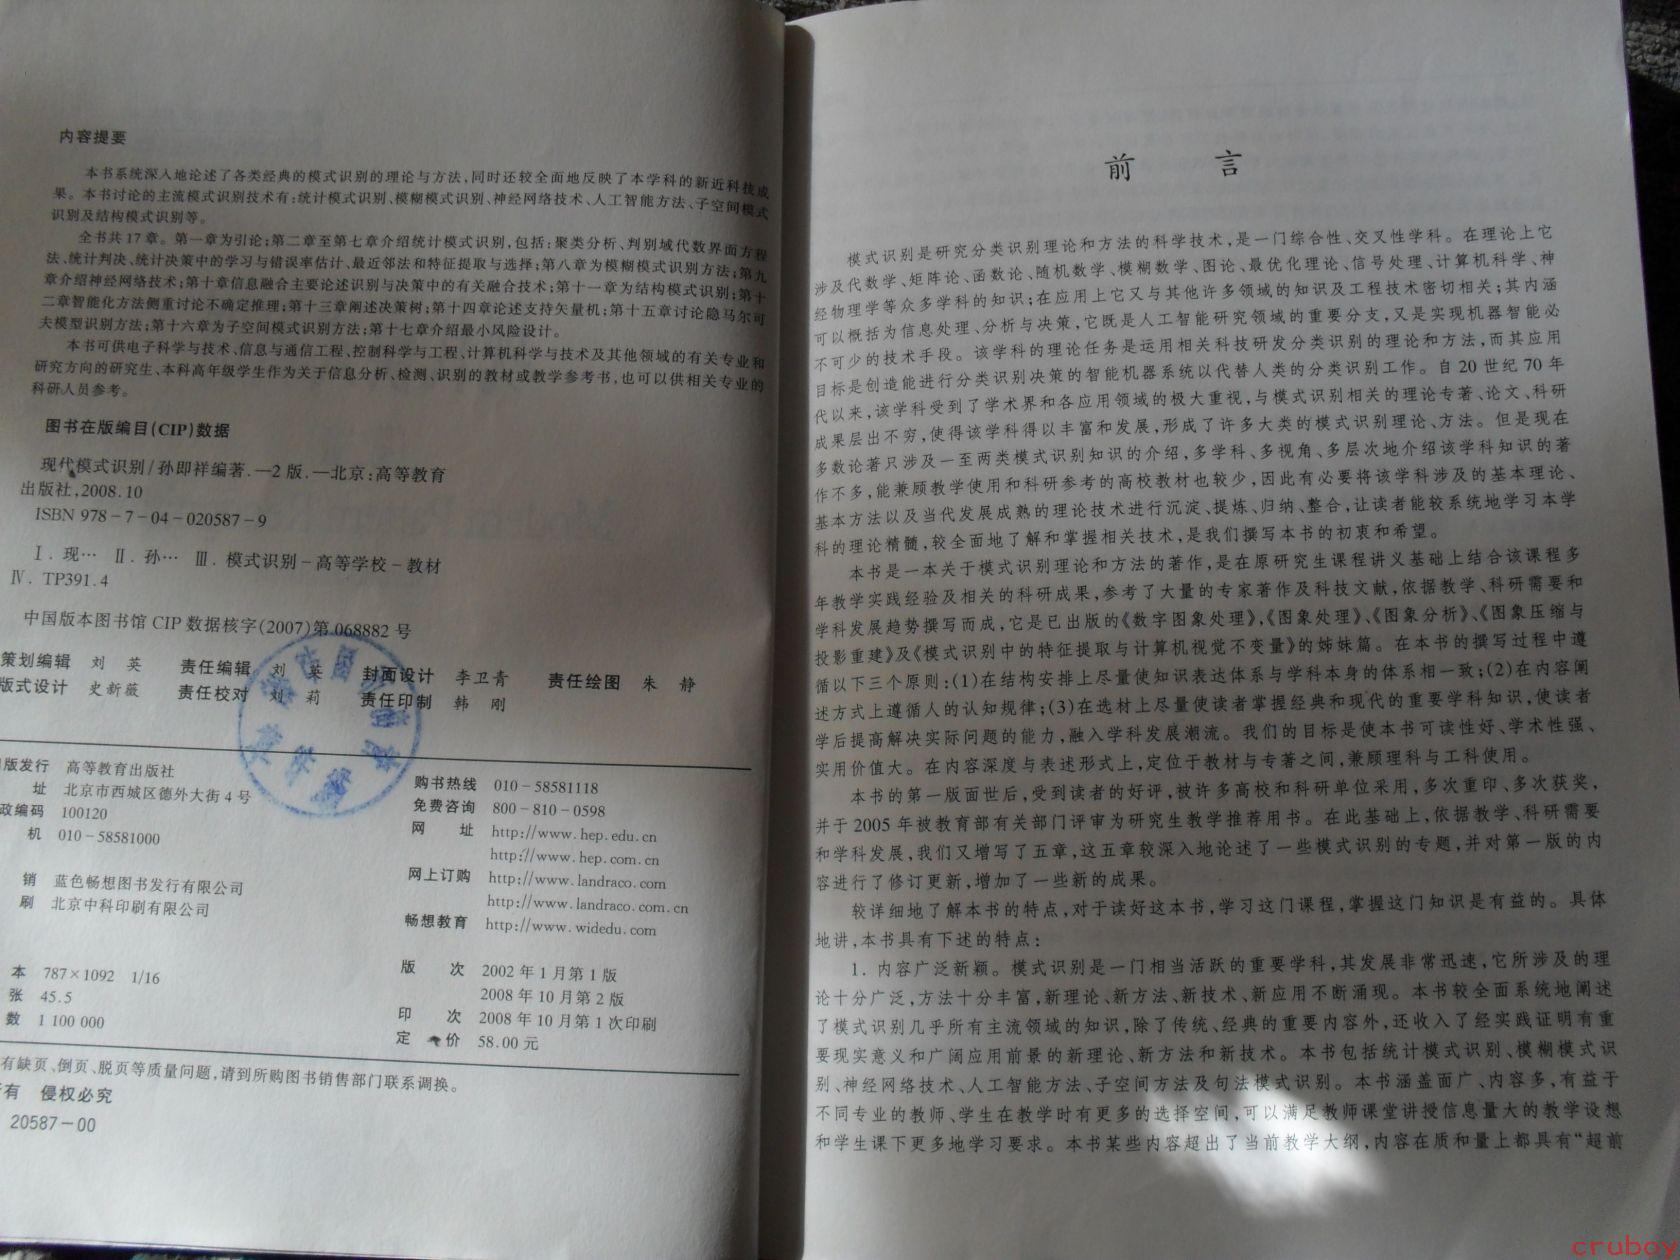 内容提要
本书系统深入地论述了各类经典的模式识别的理论与方法,同时还较全面地反映了本学科的新近科技成
果。本书讨论的主流模式识别技术有:统计模式识别、模糊模式识别、神经网络技术、人工智能方法、子空间模式
识别及结构模式识别等。
全书共17章。第一章为引论;第二章至第七章介绍统计模式识别,包括:聚类分析、判别域代数界面方程
法、统计判决、统计决策中的学习与错误率估计、最近邻法和特征提取与选择;第八章为模糊模式识别方法;第九
章介绍神经网络技术;第十章信息融合主要论述识别与决策中的有关融合技术;第十一章为结构模式识别;第十
二章智能化方法侧重讨论不确定推理;第十三章阐述决策树;第十四章论述支持矢量机;第十五章讨论隐马尔可
夫模型识别方法;第十六章为子空间模式识别方法;第十七章介绍最小风险设计。
本书可供电子科学与技术、信息与通信工程、控制科学与工程、计算机科学与技术及其他领域的有关专业和
研究方向的研究生、本科高年级学生作为关于信息分析、检测、识别的教材或教学参考书,也可以供相关专业的
科研人员参考。
图书在版编目(CIP)数据
现代模式识别/孙即祥编著.—2版.—北京:高等教育
出版社,2008.10
ISBN 978-7-04-020587-9
Ⅰ.现… Ⅱ.孙… Ⅲ.模式识别-高等学校-教材
Ⅳ.TP391.4
中国版本图书馆CIP数据核字(2007)第068882号
策划编辑 刘 英 责任编辑 刘 英 封面设计 李卫青 责任绘图 朱 静
版式设计 史新薇 责任校对 刘 莉 责任印制 韩 刚
版发行 高等教育出版社
址 北京市西城区德外大街4号
政编码 100120
机 010-58581000
销 蓝色畅想图书发行有限公司
刷 北京中科印刷有限公司
本 787×1092 1/16
张 45.5
数 1 100 000
购书热线 010-58581118
免费咨询 800-810-0598
网 址 http://www.hep.edu.cn
http://www.hep.com.cn
网上订购 http://www.landraco.com
http://www.landraco.com.cn
畅想教育 http://www.widedu.com
版 次 2002年1月第1版
2008年10月第2版
印 次 2008年10月第1次印刷
定 价 58.00元
有缺页、倒页、脱页等质量问题,请到所购图书销售部门联系调换。
有 侵权必究
20587-00
前 言
模式识别是研究分类识别理论和方法的科学技术,是一门综合性、交叉性学科。在理论上它
涉及代数学、矩阵论、函数论、随机数学、模糊数学、图论、最优化理论、信号处理、计算机科学、神
经物理学等众多学科的知识;在应用上它又与其他许多领域的知识及工程技术密切相关;其内涵
可以概括为信息处理、分析与决策,它既是人工智能研究领域的重要分支,又是实现机器智能必
不可少的技术手段。该学科的理论任务是运用相关科技研发分类识别的理论和方法,而其应用
目标是创造能进行分类识别决策的智能机器系统以代替人类的分类识别工作。自20世纪70年
代以来,该学科受到了学术界和各应用领域的极大重视,与模式识别相关的理论专著、论文、科研
成果层出不穷,使得该学科得以丰富和发展,形成了许多大类的模式识别理论、方法。但是现在
多数论著只涉及一至两类模式识别知识的介绍,多学科、多视角、多层次地介绍该学科知识的著
作不多,能兼顾教学使用和科研参考的高校教材也较少,因此有必要将该学科涉及的基本理论、
基本方法以及当代发展成熟的理论技术进行沉淀、提炼、归纳、整合,让读者能较系统地学习本学
科的理论精髓,较全面地了解和掌握相关技术,是我们撰写本书的初衷和希望。
本书是一本关于模式识别理论和方法的著作,是在原研究生课程讲义基础上结合该课程多
年教学实践经验及相关的科研成果,参考了大量的专家著作及科技文献,依据教学、科研需要和
学科发展趋势撰写而成,它是已出版的《数字图象处理》,《图象处理》、《图象分析》、《图象压缩与
投影重建》及《模式识别中的特征提取与计算机视觉不变量》的姊妹篇。在本书的撰写过程中遵
循以下三个原则:(1)在结构安排上尽量使知识表达体系与学科本身的体系相一致;(2)在内容阐
述方式上遵循人的认知规律;(3)在选材上尽量使读者掌握经典和现代的重要学科知识,使读者
学后提高解决实际问题的能力,融入学科发展潮流。我们的目标是使本书可读性好、学术性强、
实用价值大。在内容深度与表述形式上,定位于教材与专著之间,兼顾理科与工科使用。
本书的第一版面世后,受到读者的好评,被许多高校和科研单位采用,多次重印、多次获奖,
并于2005年被教育部有关部门评审为研究生教学推荐用书。在此基础上,依据教学、科研需要
和学科发展,我们又增写了五章,这五章较深入地论述了一些模式识别的专题,并对第一版的内
容进行了修订更新,增加了一些新的成果。
较详细地了解本书的特点,对于读好这本书,学习这门课程,掌握这门知识是有益的。具体
地讲,本书具有下述的特点:
1.内容广泛新颖。模式识别是一门相当活跃的重要学科,其发展非常迅速,它所涉及的理
论十分广泛,方法十分丰富,新理论、新方法、新技术、新应用不断涌现。本书较全面系统地阐述
了模式识别几乎所有主流领域的知识,除了传统、经典的重要内容外,还收入了经实践证明有重
要现实意义和广阔应用前景的新理论、新方法和新技术。本书包括统计模式识别、模糊模式识
别、神经网络技术、人工智能方法、子空间方法及句法模式识别。本书涵盖面广、内容多,有益于
不同专业的教师、学生在教学时有更多的选择空间,可以满足教师课堂讲授信息量大的教学设想
和学生课下更多地学习要求。本书某些内容超出了当前教学大纲,内容在质和量上都具有“超前
cruboy